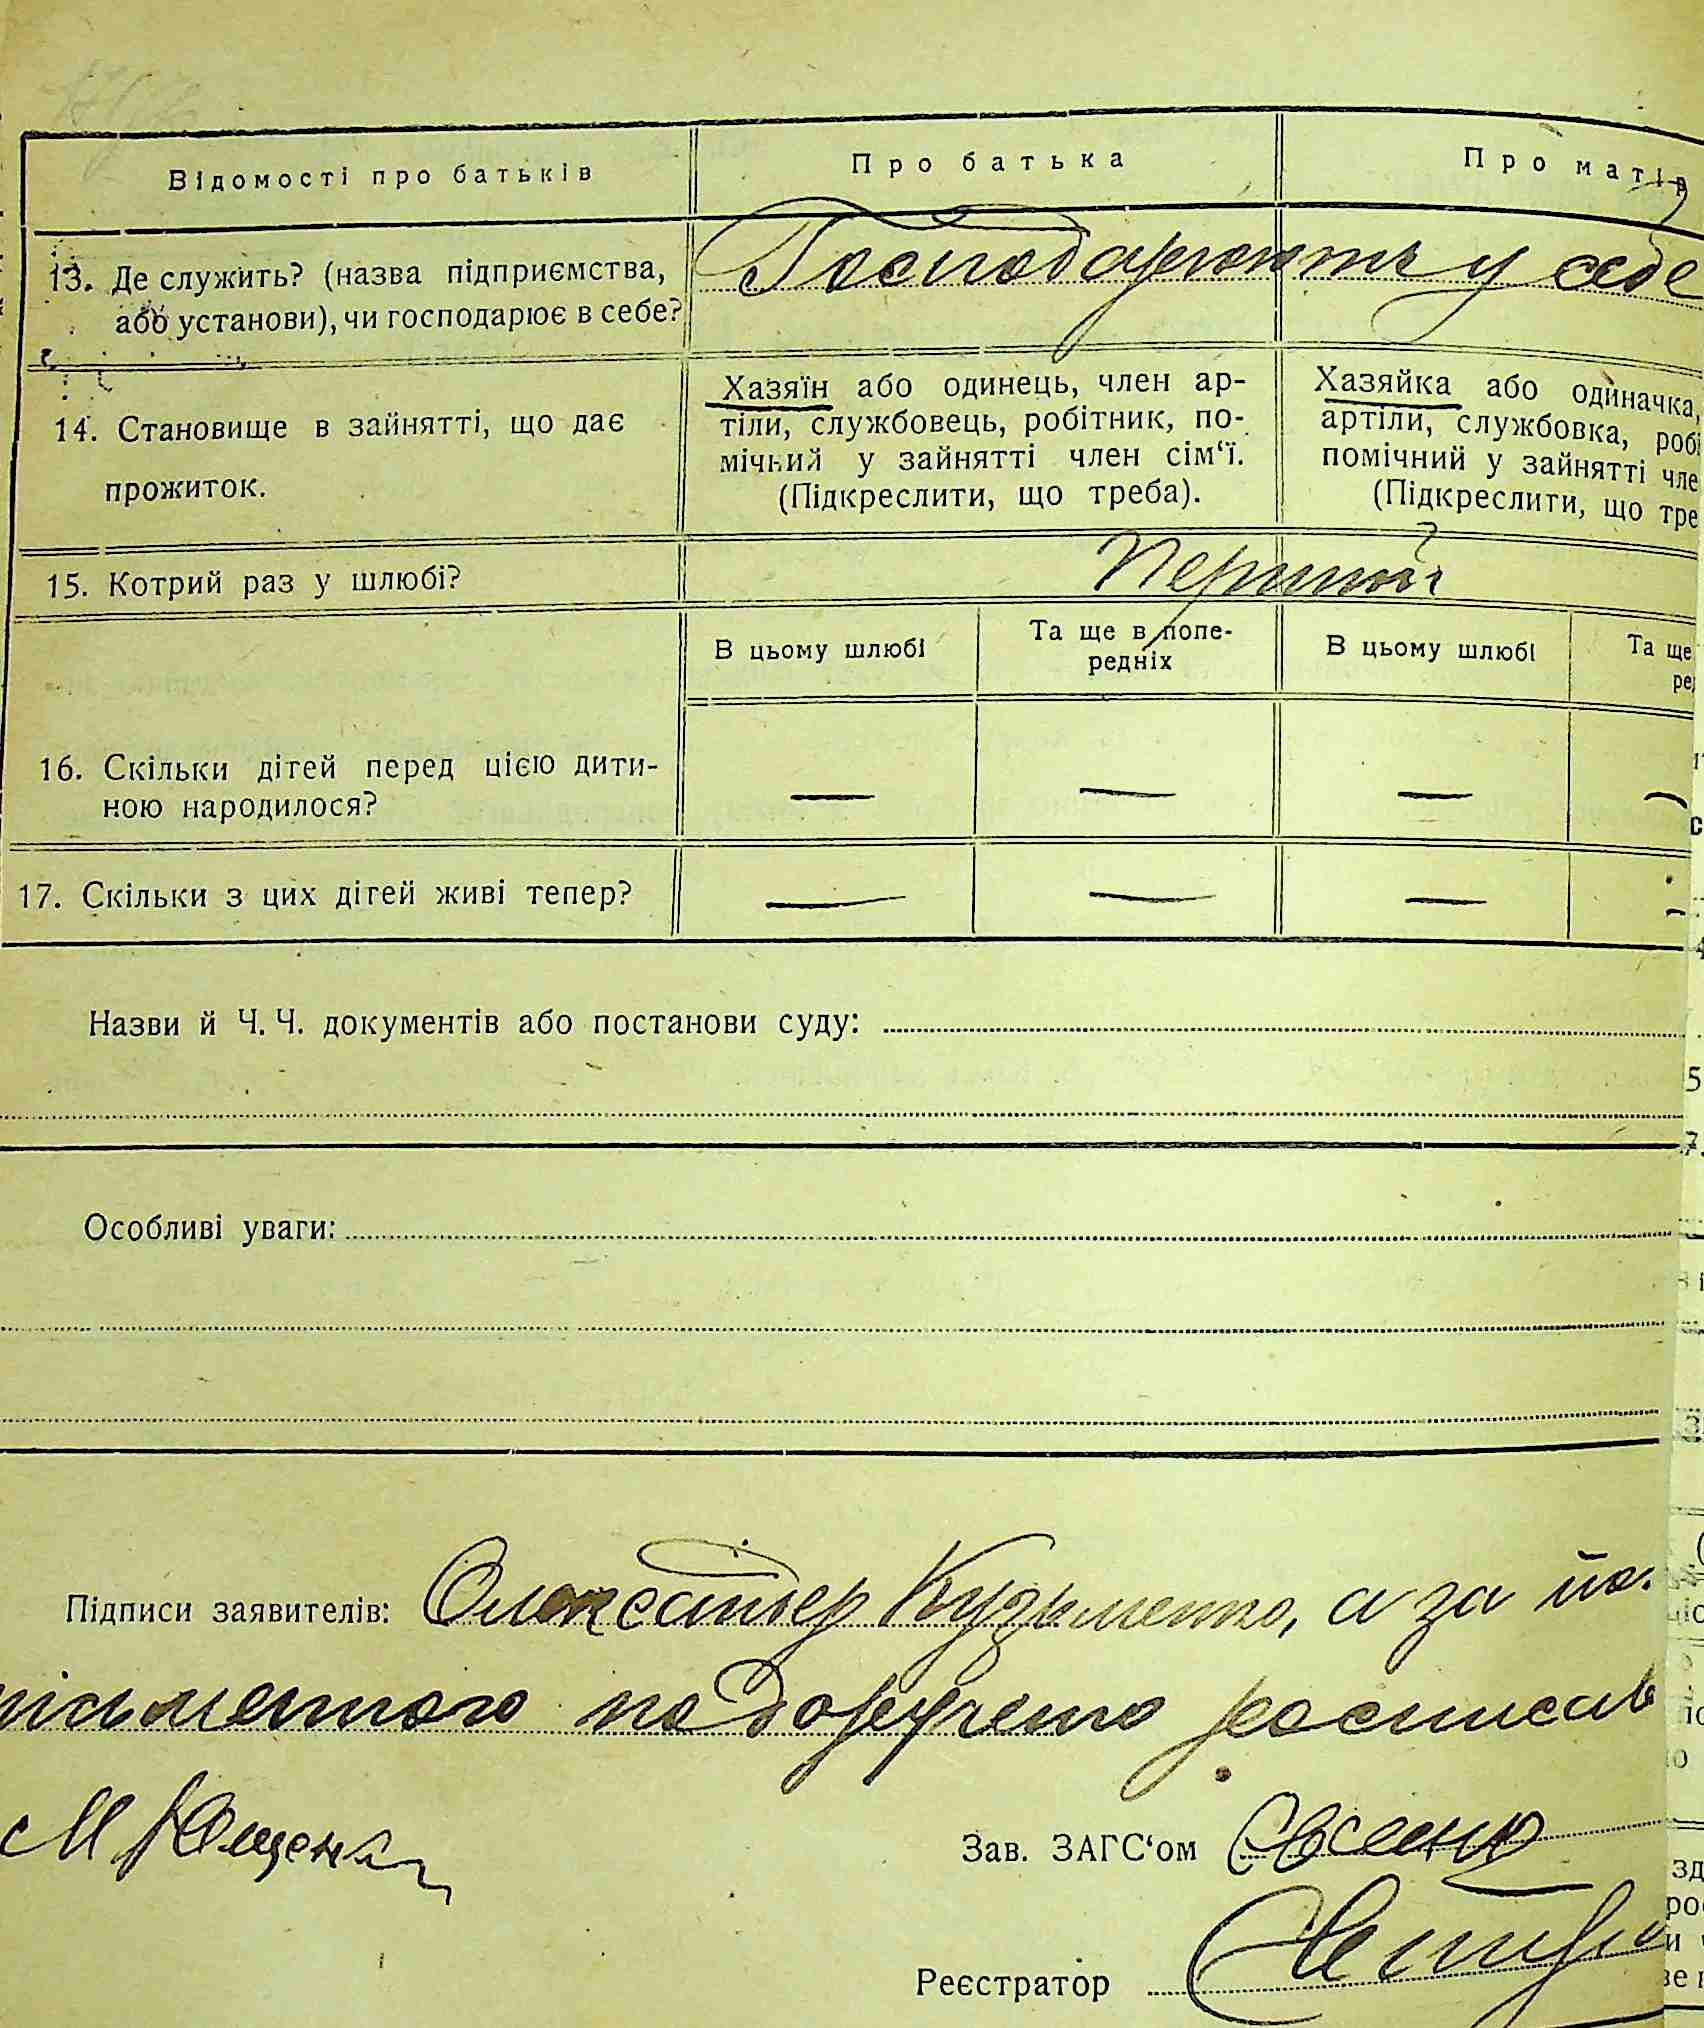 Відомості про батьків Про батька Про матір
13. Де служить? (назва підприємства, Господарюють у себе
або установи), чи господарює в себе?
14. Становище в зайнятті, що дає
прожиток.
Хазяїн або одинець, член ар-
тіли, службовець, робітник, по-
мічний у зайнятті член сім‘ї.
(Підкреслити, що треба).
Хазяйка або одиначка,
артіли, службовка, робі
помічний у зайнятті чле
(Підкреслити, що тре
15. Котрий раз у шлюбі? Перший
В цьому шлюбі Та ще в попе-
редніх
В цьому шлюбі Та ще
ре
16. Скільки дітей перед цією дити-
ною народилося? — — — —
17. Скільки з цих дігей живі тепер? — — — —
Назви й Ч. Ч. документів або постанови суду:
Особливі уваги:
Підписи заявителів: Олександер Кузьменко, а за йо.
письменного по доручено росписав
М Ющенко
Зав. ЗАГС‘ом
Реєстратор